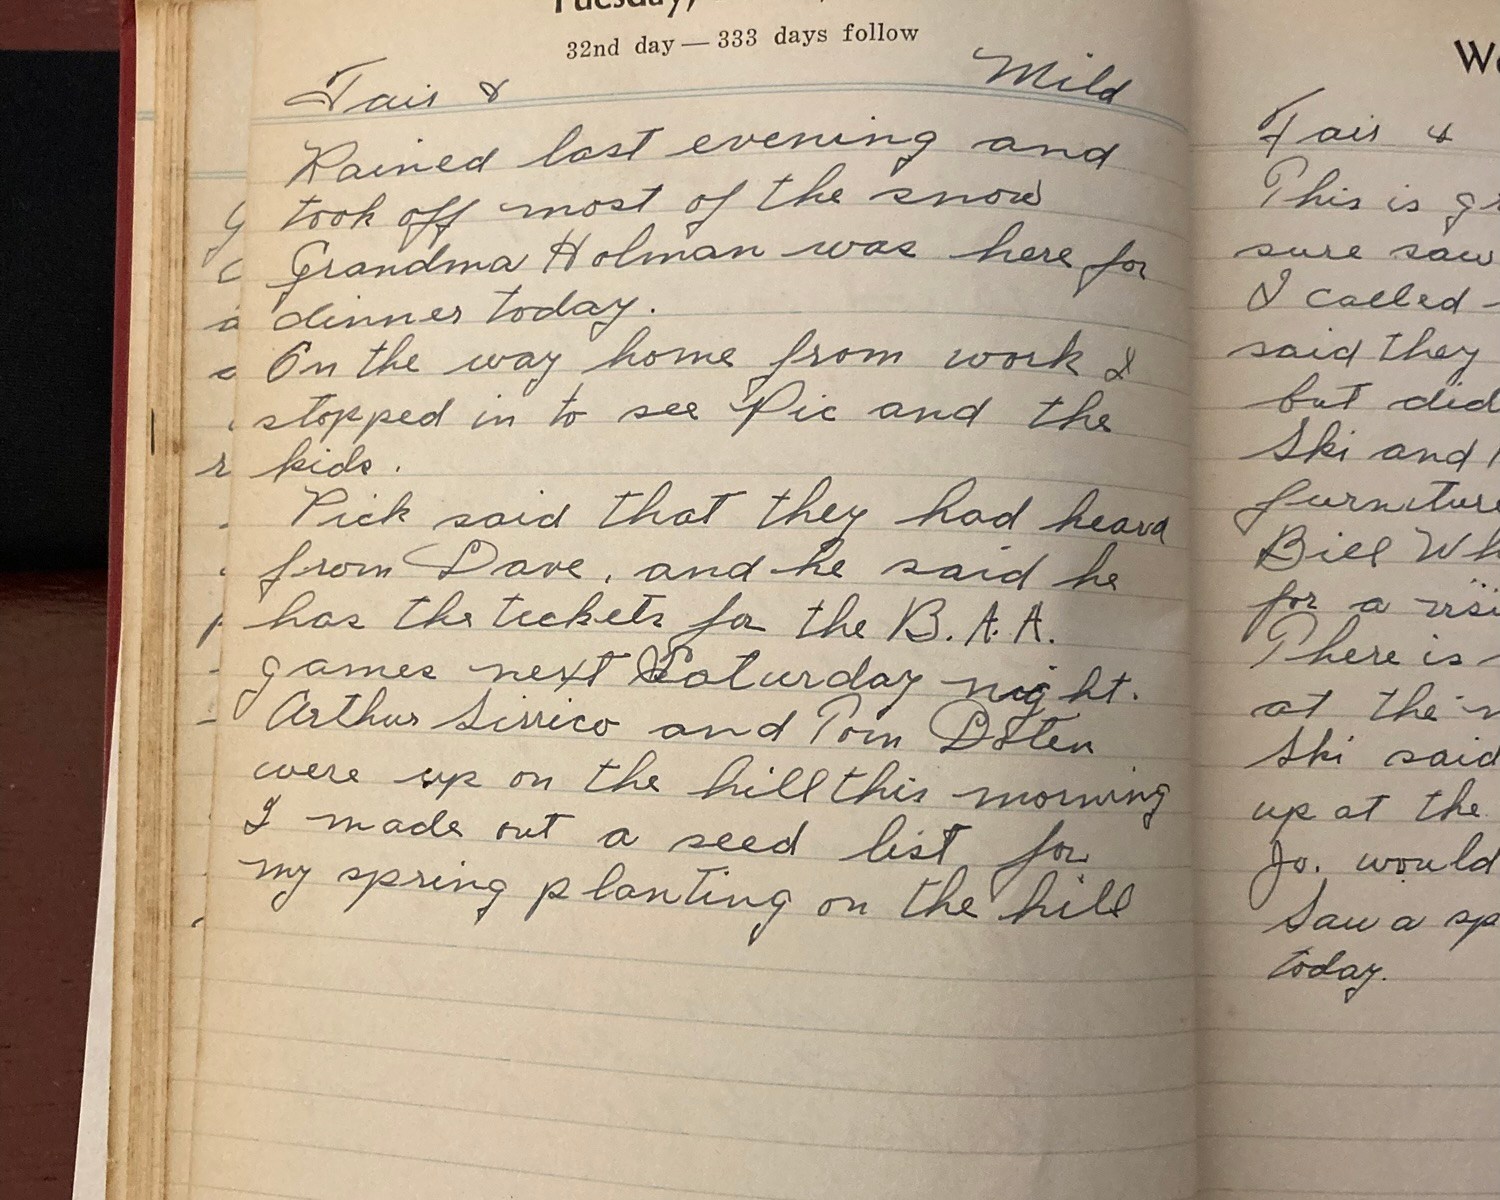 Tuesday,
32nd day — 333 days follow
Fair & Mild
Rained last evening and
took off most of the snow
Grandma Holman was here for
dinner today.
On the way home from work I
stopped in to see Pic and the
kids.
Pick said that they had heard
from Dave, and he said he
has the tickets for the B.A.A.
games next Saturday night.
Arthur Sirrico and Tom Doten
were up on the hill this morning
I made out a seed list for
my spring planting on the hill
Fair &
This is
sure saw
I called
said they
but did
Ski and
furniture
Bill
for a
There is
at the
Ski said
up at the
Jo. would
Saw a
today.